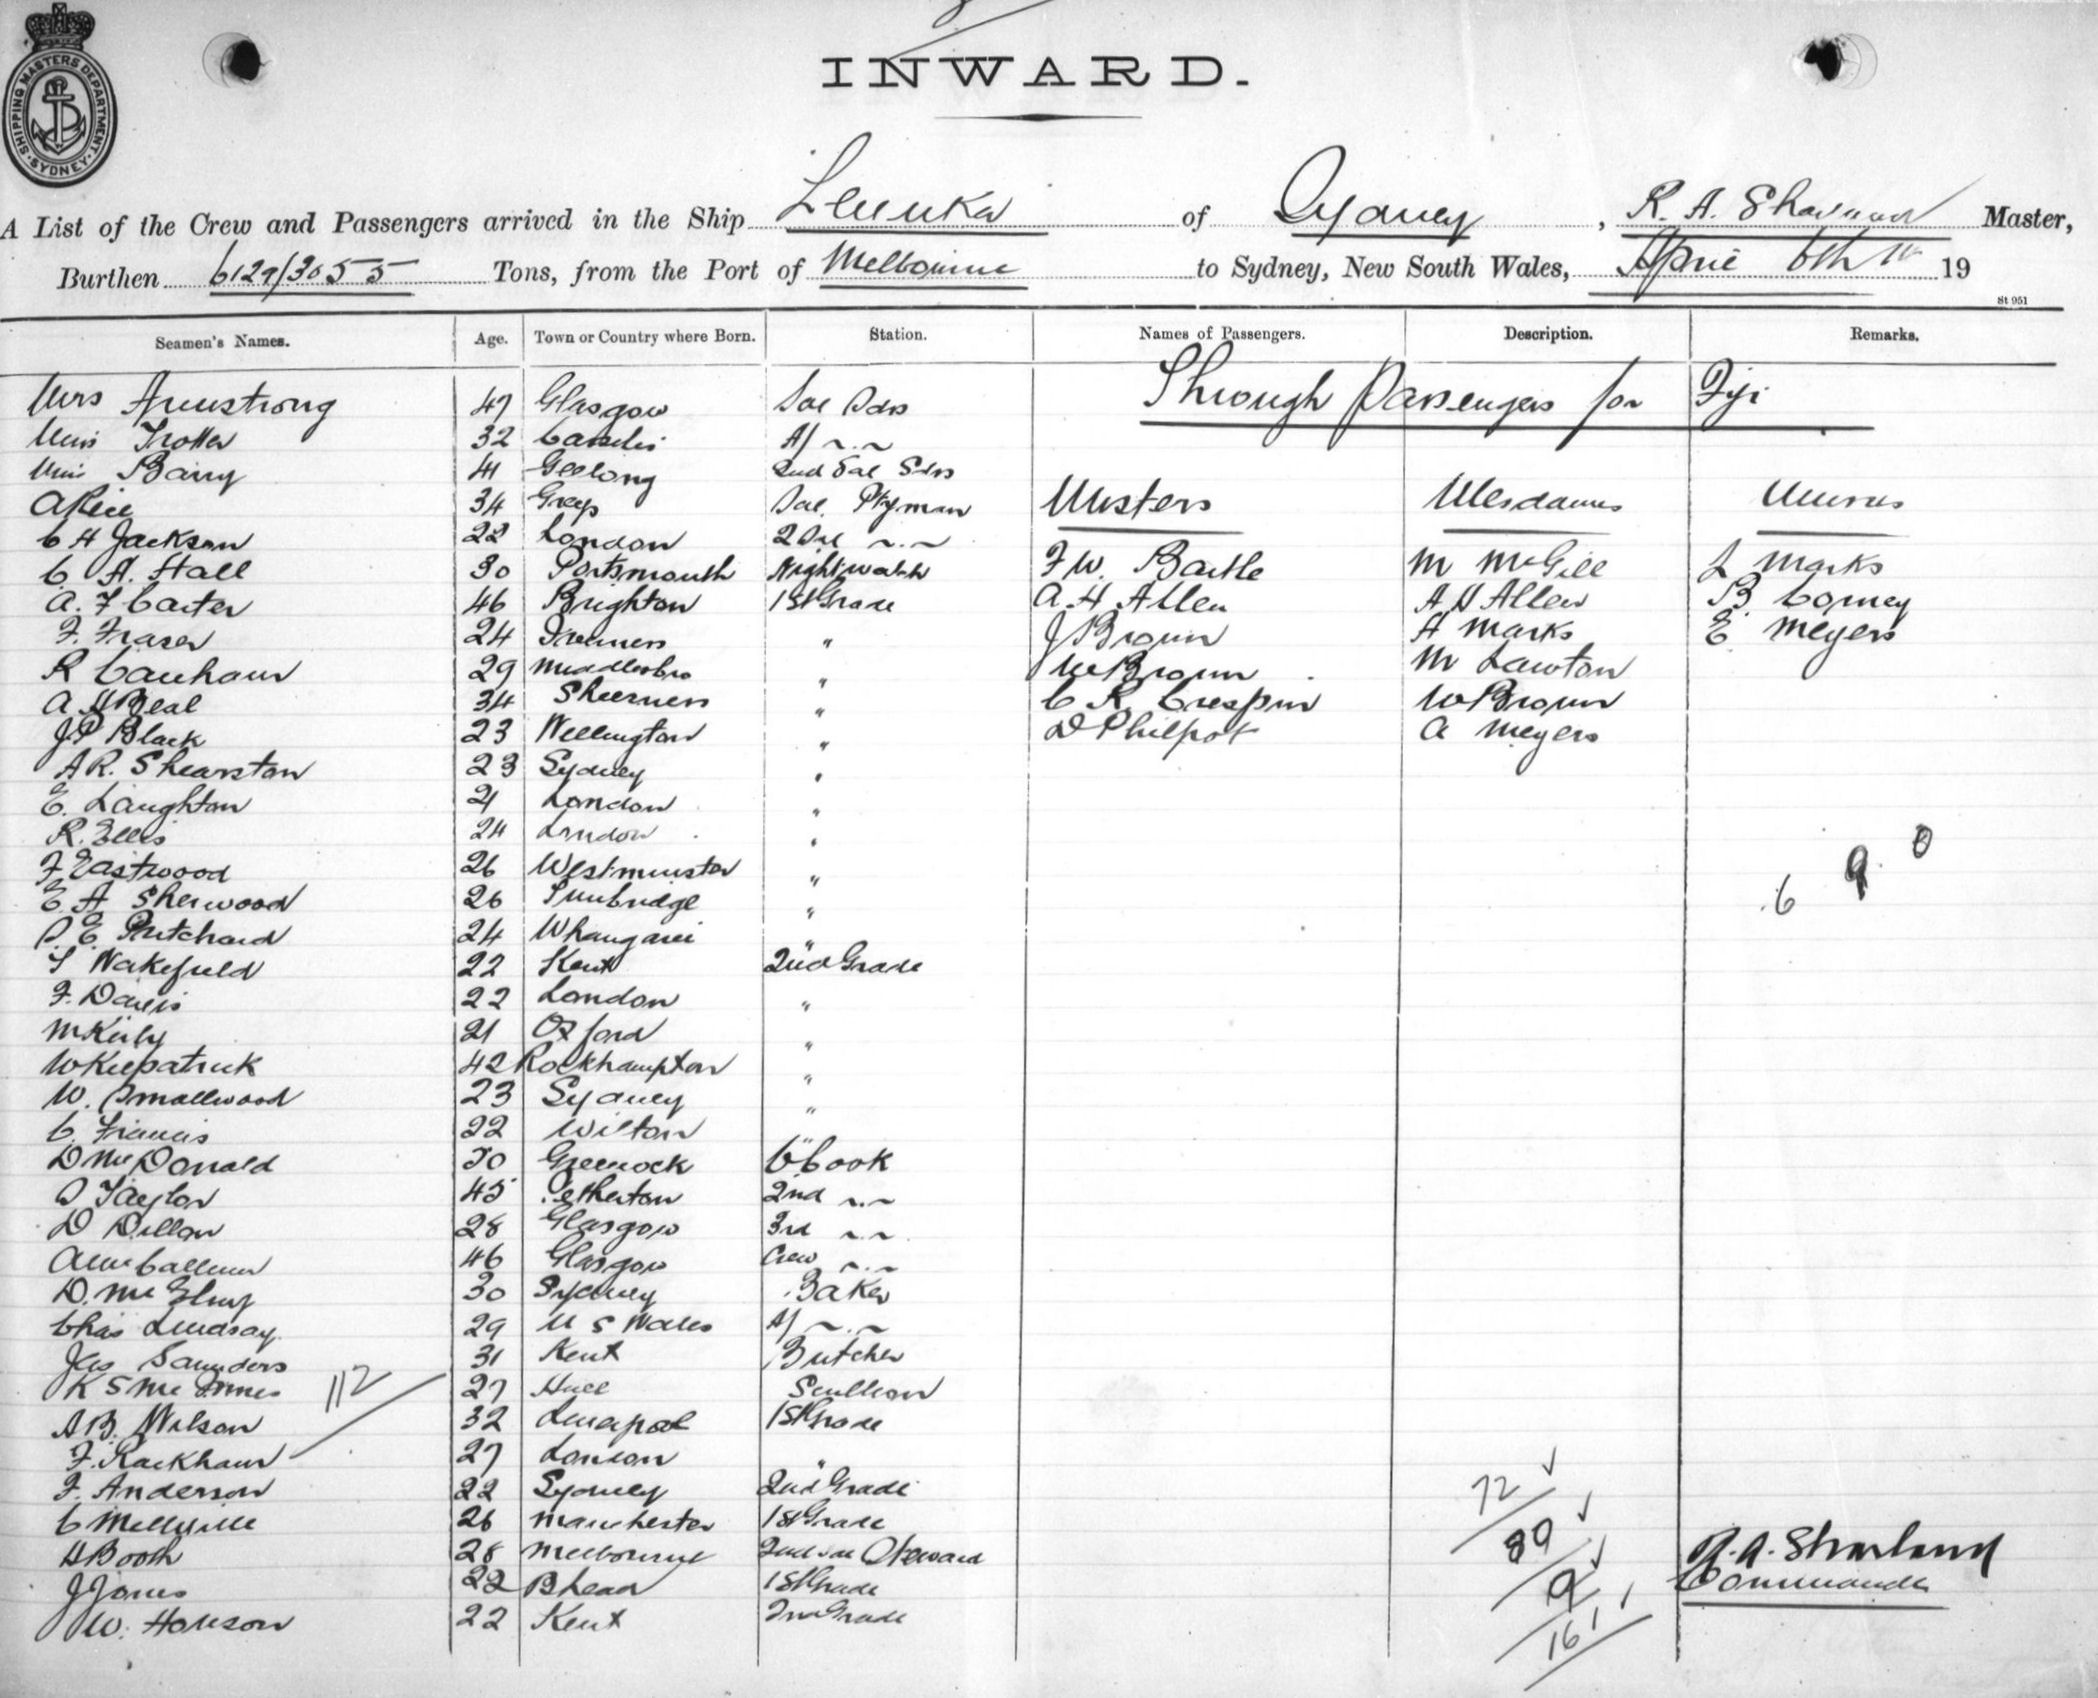 SHIPPING MASTERS DEPARTMENT
SYDNEY
INWARD.
A List of the Crew and Passengers arrived in the Ship Levuka of Sydney, R. A. Sharland Master,
Burthen 6129/3055 Tons, from the Port of Melbourne to Sydney, New South Wales, April 6th 19
St 951
Seamen's Names. Age. Town or Country where Born. Station. Names of Passengers. Description. Remarks.
Through Passengers for Fiji
Mrs Armstrong 47 Glasgow
Miss Trotter 32
Miss Barry 41 Geelong 2nd Sal Sdss
A Rice 34 Sal. Ptyman Misters Mesdames Misses
C H Jackson 22 London
C. A. Hall 30 Portsmouth Nightwatch F W. Bartle M McGill L Marks
A. F Carter 46 Brighton 1st Grade A. H Allen A H Allen B. Corney
F. Fraser 24 " J Brown A Marks E Meyers
R Canham 29 Middlesbro " W Brown M Lawton
A H Beal 34 Sheerness " C R. Crespin W Brown
J. P Black 23 Wellington " D Philpot A Meyers
A R. Shearston 23 Sydney "
E. Laughton 21 London "
R. Ellis 24 London "
F Eastwood 26 Westminster "
E A Sherwood 26 Tunbridge "
6 9 8
S. E. Pritchard 24 Whangarei "
S Wakefield 22 Kent 2nd Grade
F. Davis 22 London "
M Kirby 21 Oxford "
W Kilpatrick 42 Rockhampton "
W. Smallwood 23 Sydney "
C. Francis 22 Wilton "
D McDonald 30 Greenock C Cook
S Taylor 45 Petherton 2nd ~.~
D Dillon 28 Glasgow 3rd ~.~
A McCallum 46 Glasgow Crew ~.~
D. McElroy 30 Sydney Baker
Chas Lindsay 29 N S Wales A/ ~.~
Jas Saunders 31 Kent Butcher
K S McInnes 112 27 Hull Scullion
A B. Wilson 32 Liverpool 1st Grade
F. Rackham 27 London "
F. Anderson 22 Sydney 2nd Grade
72
C Mellville 26 Manchester 1st Grade
89
H Booth 28 Melbourne 2nd Sal Steward
R. A. Sharland
J Jones 22 B'head 1st Grade
9
Commander
W. Howson 22 Kent 2nd Grade
161